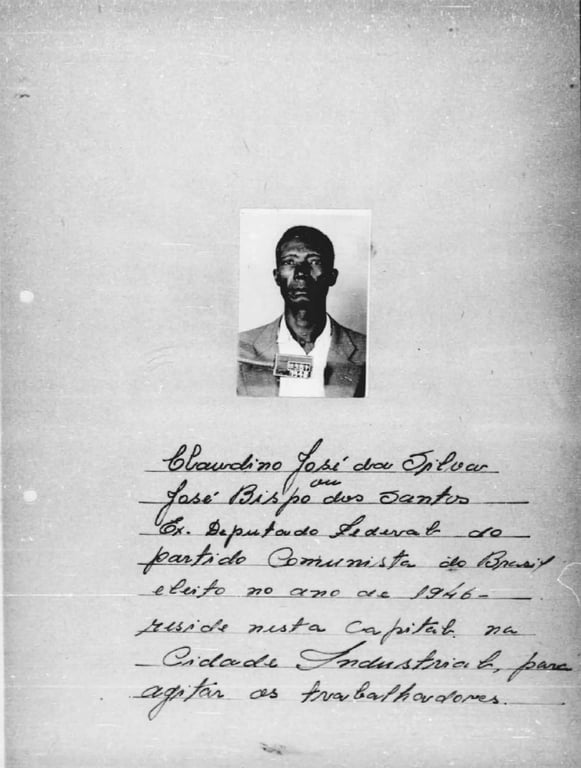 Claudino José da Silva
ou
José Bispo dos Santos
Ex. Deputado Federal do
partido Comunista do Brasil
eleito no ano de 1946-
reside nesta Capital na
Cidade Industrial, para
agitar os trabalhadores.